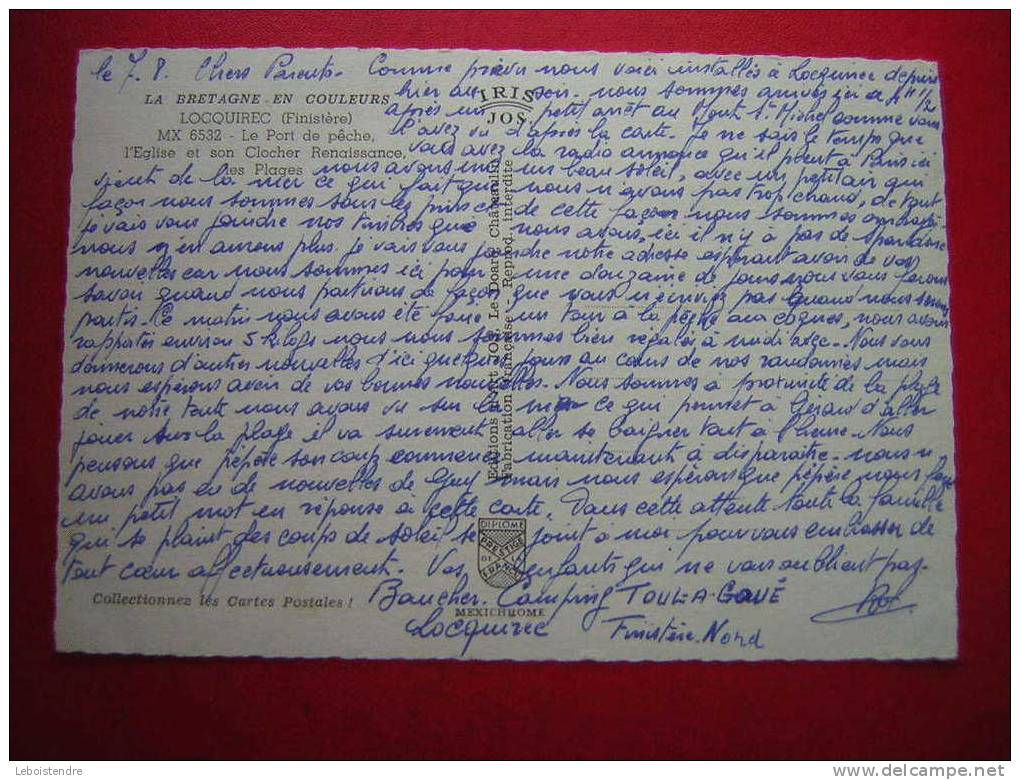 le 7.8. Chers Parents - Comme prévu nous voici installés à Locquirec depuis
hier au soir - nous sommes arrivés ici a 4H 1/2
après un petit arrêt au Mont St Michel comme vous
l'avez vu d'après la carte. Je ne sais le temps que
vous avez la radio annonce qu'il pleut à Paris ici
nous avons un beau soleil, avec un petit air qui
vient de la mer ce qui fait que nous n'avons pas trop chaud, de tout
façon nous sommes sous les pins de cette façon nous sommes
je vais vous joindre nos timbres que nous avons, ici il n'y à pas de
nous n'en aurons plus. je vais vous joindre notre adresse espérant avoir de vos
nouvelles car nous sommes ici pour une douzaine de jours nous vous ferons
savoir quand nous partirons de façon que vous n'écriviez pas quand nous serons
partis. Ce matin nous avons été faire un tour à la pêche aux coques, nous avons
rapportés environ 5 kilogs nous nous sommes bien régalés à midi avec - Nous vous
donnerons d'autres nouvelles d'ici quelques jours au cours de nos randonnées mais
nous espérons avoir de vos bonnes nouvelles. Nous sommes à proximité de la plage
de notre tente nous avons vu sur la mer ce qui permet à Gérard d'aller
jouer sur la plage il va surement aller se baigner tout à l'heure. Nous
pensons que pépère son coup commence maintenant à disparaitre - nous n'
avons pas eu de nouvelles de Guy mais nous espérons que pépère nous fera
un petit mot en réponse à cette carte. Dans cette attente toute la famille
qui se plaint des coups de soleil se joint à moi pour vous embrasser de
tout cœur affectueusement - Vos enfants qui ne vous oublient pas -
Baucher. Camping TOUL-A-GOUÉ
Locquirec Finistère. Nord
LA BRETAGNE EN COULEURS
LOCQUIREC (Finistère)
MX 6532 - Le Port de pêche,
l'Eglise et son Clocher Renaissance,
les Plages
IRIS
JOS
Editions d'Art JOS, Le Doaré Châteaulin
Fabrication Française Reprod. interdite
DIPLOME
PRESTIGE
DE LA
FRANCE
MEXICHROME
Collectionnez les Cartes Postales !
Leboistendre
www.delcampe.net